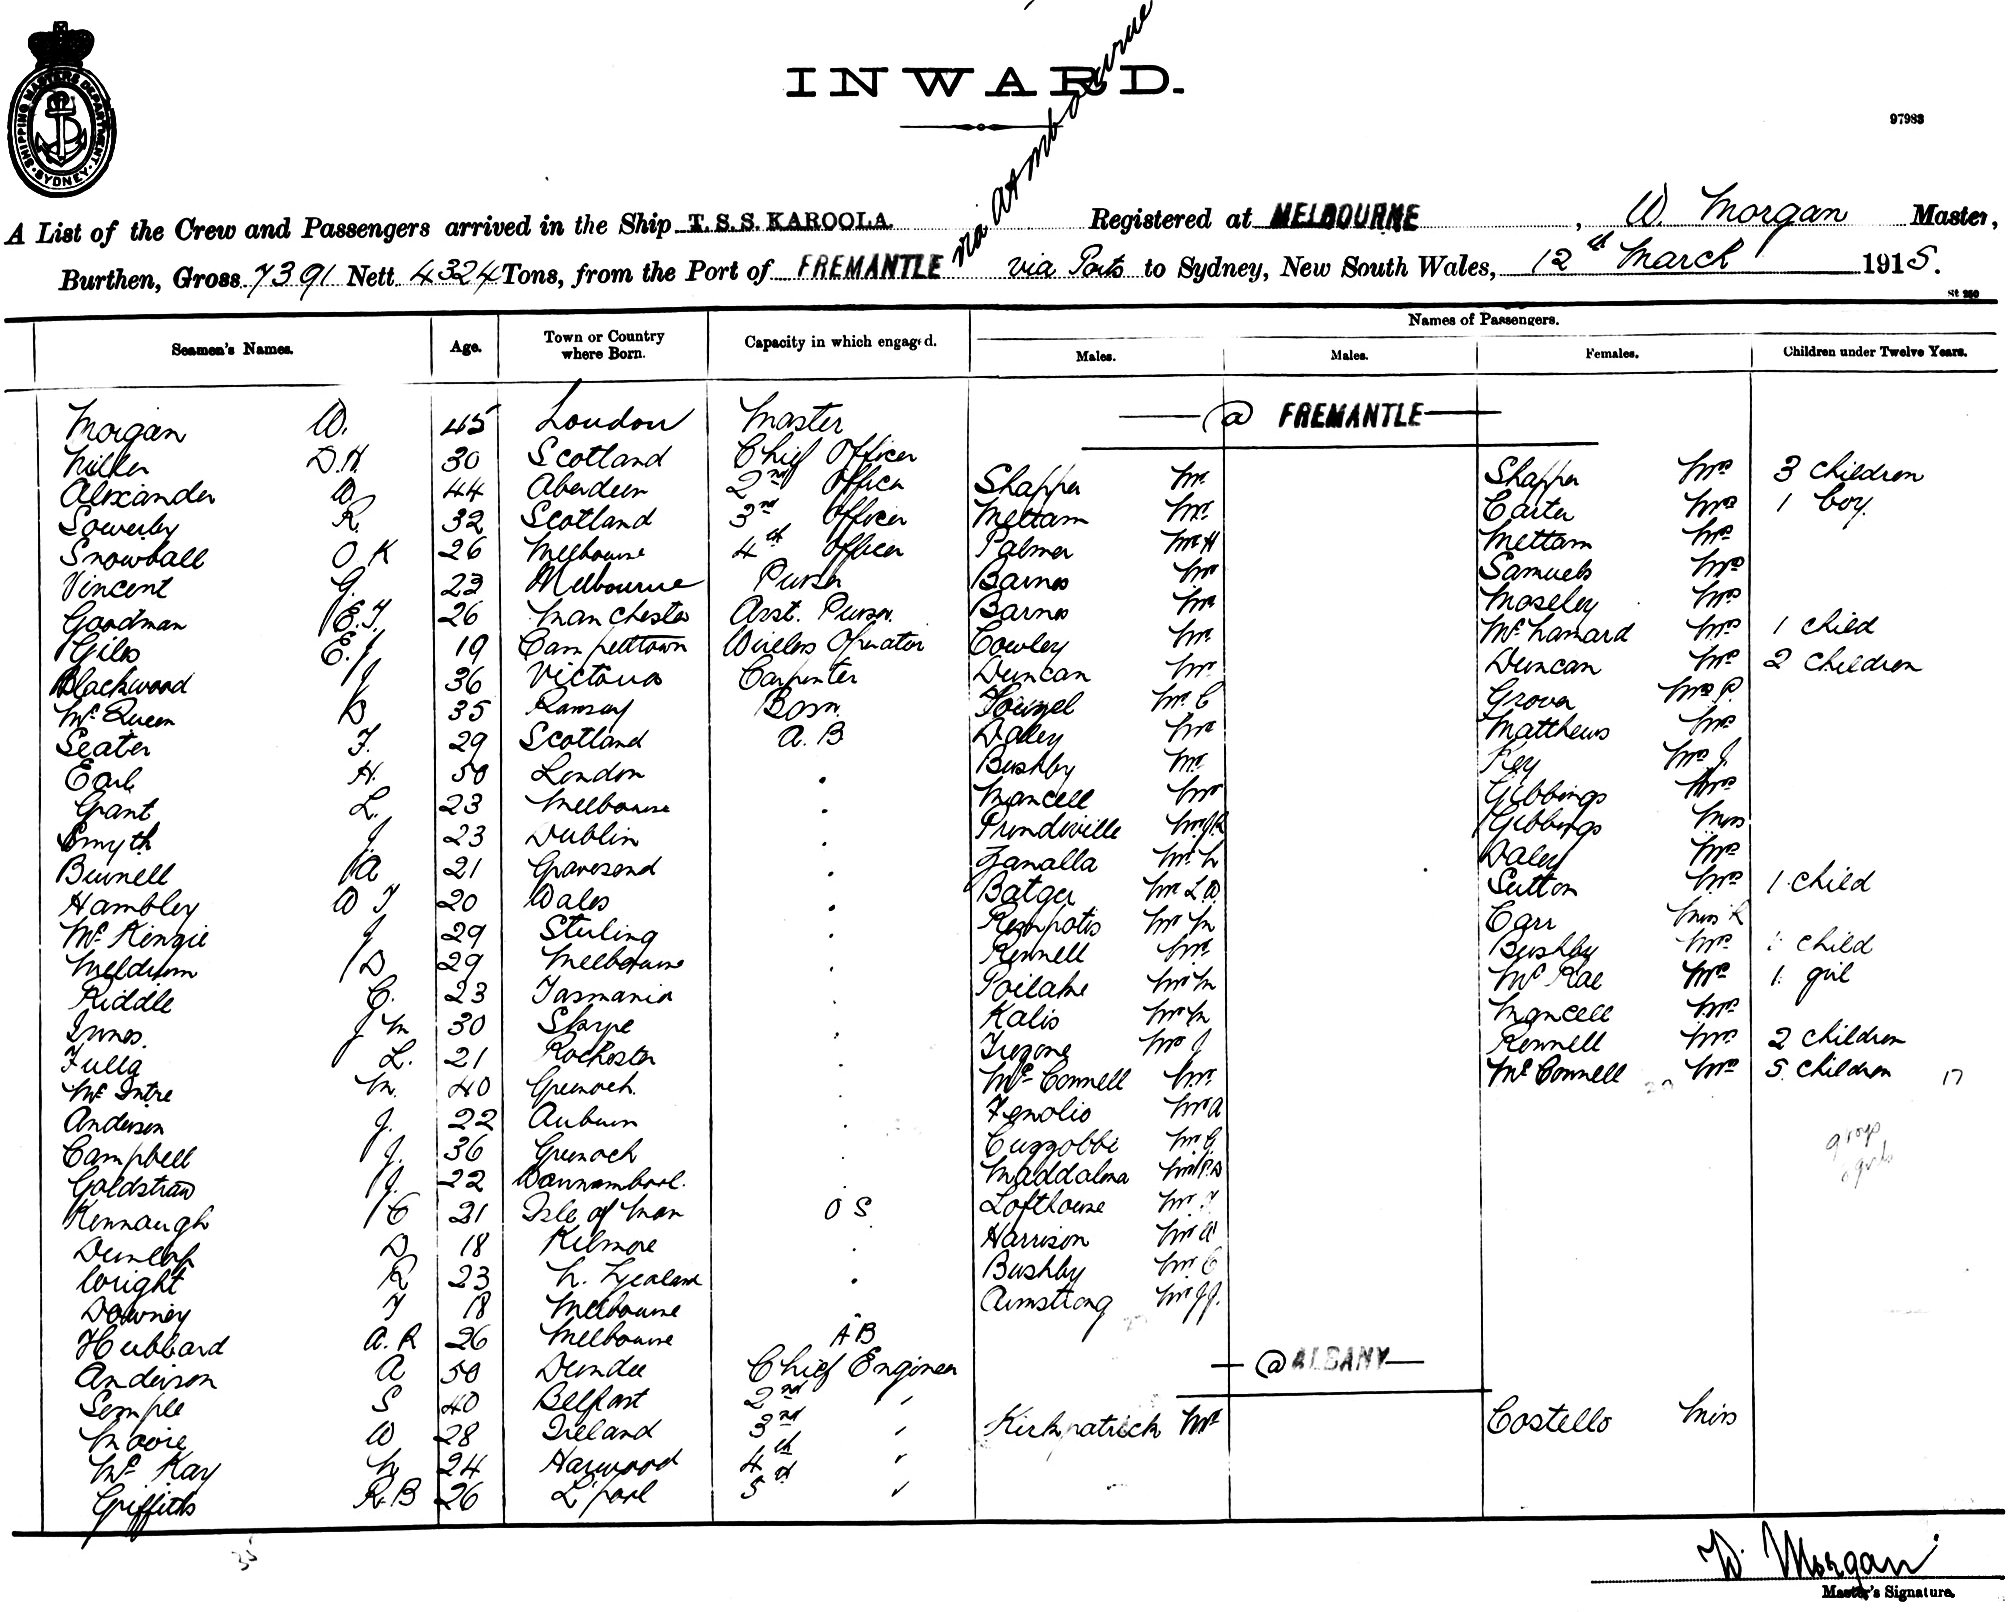 INWARD.
97983
SHIPPING MASTERS DEPARTMENT
SYDNEY
A List of the Crew and Passengers arrived in the Ship T.S.S. KAROOLA. Registered at MELBOURNE, W. Morgan Master,
Burthen, Gross 7391 Nett 4324 Tons, from the Port of FREMANTLE via Ports to Sydney, New South Wales, 12th March 1915.
via
St 250
Names of Passengers.
Seamen's Names. Age. Town or Country where Born. Capacity in which engaged. Males. Males. Females. Children under Twelve Years.
Morgan W. 45 London Master @ FREMANTLE
Miller D.H. 30 Scotland Chief Officer Shapper Mr Shapper Mrs 3 children
Alexander W 44 Aberdeen 2nd Officer Mettam Mr. Carter Mrs 1 boy.
Sowerby R. 32 Scotland 3rd Officer Palmer Mr H Mettam Mrs
Snowball O K 26 Melbourne 4th Officer Barnes Mr Samuels Mrs
Vincent G. 23 Melbourne Purser Barnes Mr Moseley Mrs
Goodman E.T. 26 Manchester Asst. Purser. Cowley Mr. Mrs 1 child
Giles E.J 19 Campelltown Wireless Operator Duncan Mr. Duncan Mrs 2 children
Blackwood J 36 Victoria Carpenter Mr. C Grover Mrs P.
McQueen D 35 Ramsey Bosn. Daley Mr Matthews Mrs
Seater F. 29 Scotland A.B Bushby Mr. Key Mrs J.
Earl H. 50 London Mancell Mr Gibbings Mrs
Grant L. 23 Melbourne Prendiville Mr J.R Gibbings Miss
Smyth J 23 Dublin Zanalla Mr. L Daley Mrs
Bunnell A 21 Gravesend Batger Mr L.W Sutton Mrs 1 child
Hambley W T 20 Wales Mr M Carr Miss K
McKenzie J 29 Sterling Rennell Mr. Bushby Mrs 1 child
Meldrum D 29 Melbourne Mr M McRae Mrs 1. girl
Riddle C. 23 Tasmania Kalis Mr M Mancell Mrs
Innes. J M 30 Skrpe Mr J Rennell Mrs 2 children
Fulla L. 21 Rochester McConnell Mr. McConnell Mrs 5 children 17
McIntre M. 40 Greenock. Fenolio Mr A
Anderson J. 22 Auburn Cuzzobbi Mr. G
Campbell J. 36 Greenock Maddalena Mr P.D
Goldstraw J. 22 Warrnambool. Lofthouse Mr.
Kennaugh C 21 Isle of Man O S Harrison Mr W
Dunlop D 18 Kilmore Bushby Mr C
Wright R 23 N. Zealand Armstrong Mr J.J.
Downey T 18 Melbourne
Hubbard A. R 26 Melbourne A B
Anderson A 50 Dundee Chief Engineer @ ALBANY
Semple S 40 Belfast 2nd "
Moore W 28 Ireland 3rd " Kirkpatrick Mr Costello Miss
McKay N 24 Harwood 4th "
Griffiths R.B 26 L'pool 5th "
35
W. Morgan
Master's Signature.